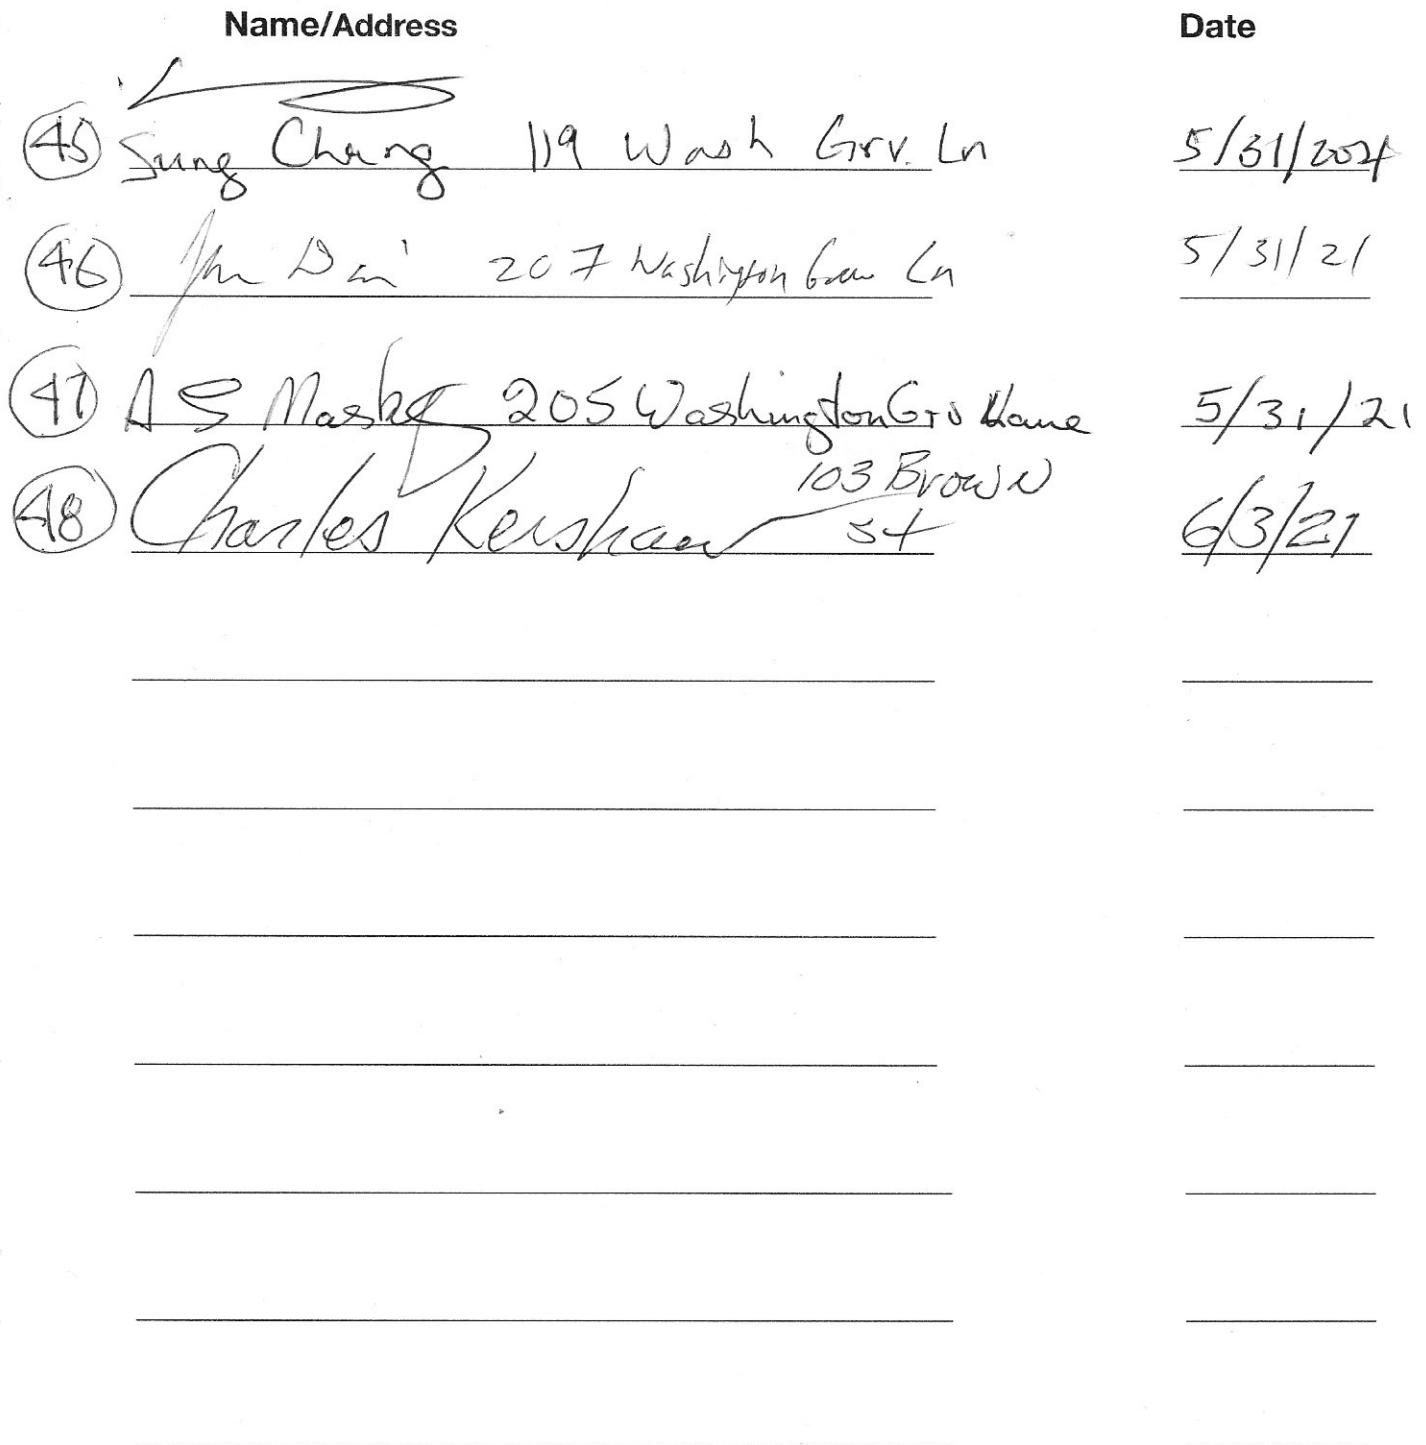 Name/Address Date
45 Sung Chang 119 Wash Grv. Ln 5/31/2021
46 Dai 207 Washington Grove Ln 5/31/21
47 A S Maskey 205 Washington Grv Lane 5/31/21
103 Brown
48 Charles Kershaw St 6/3/21